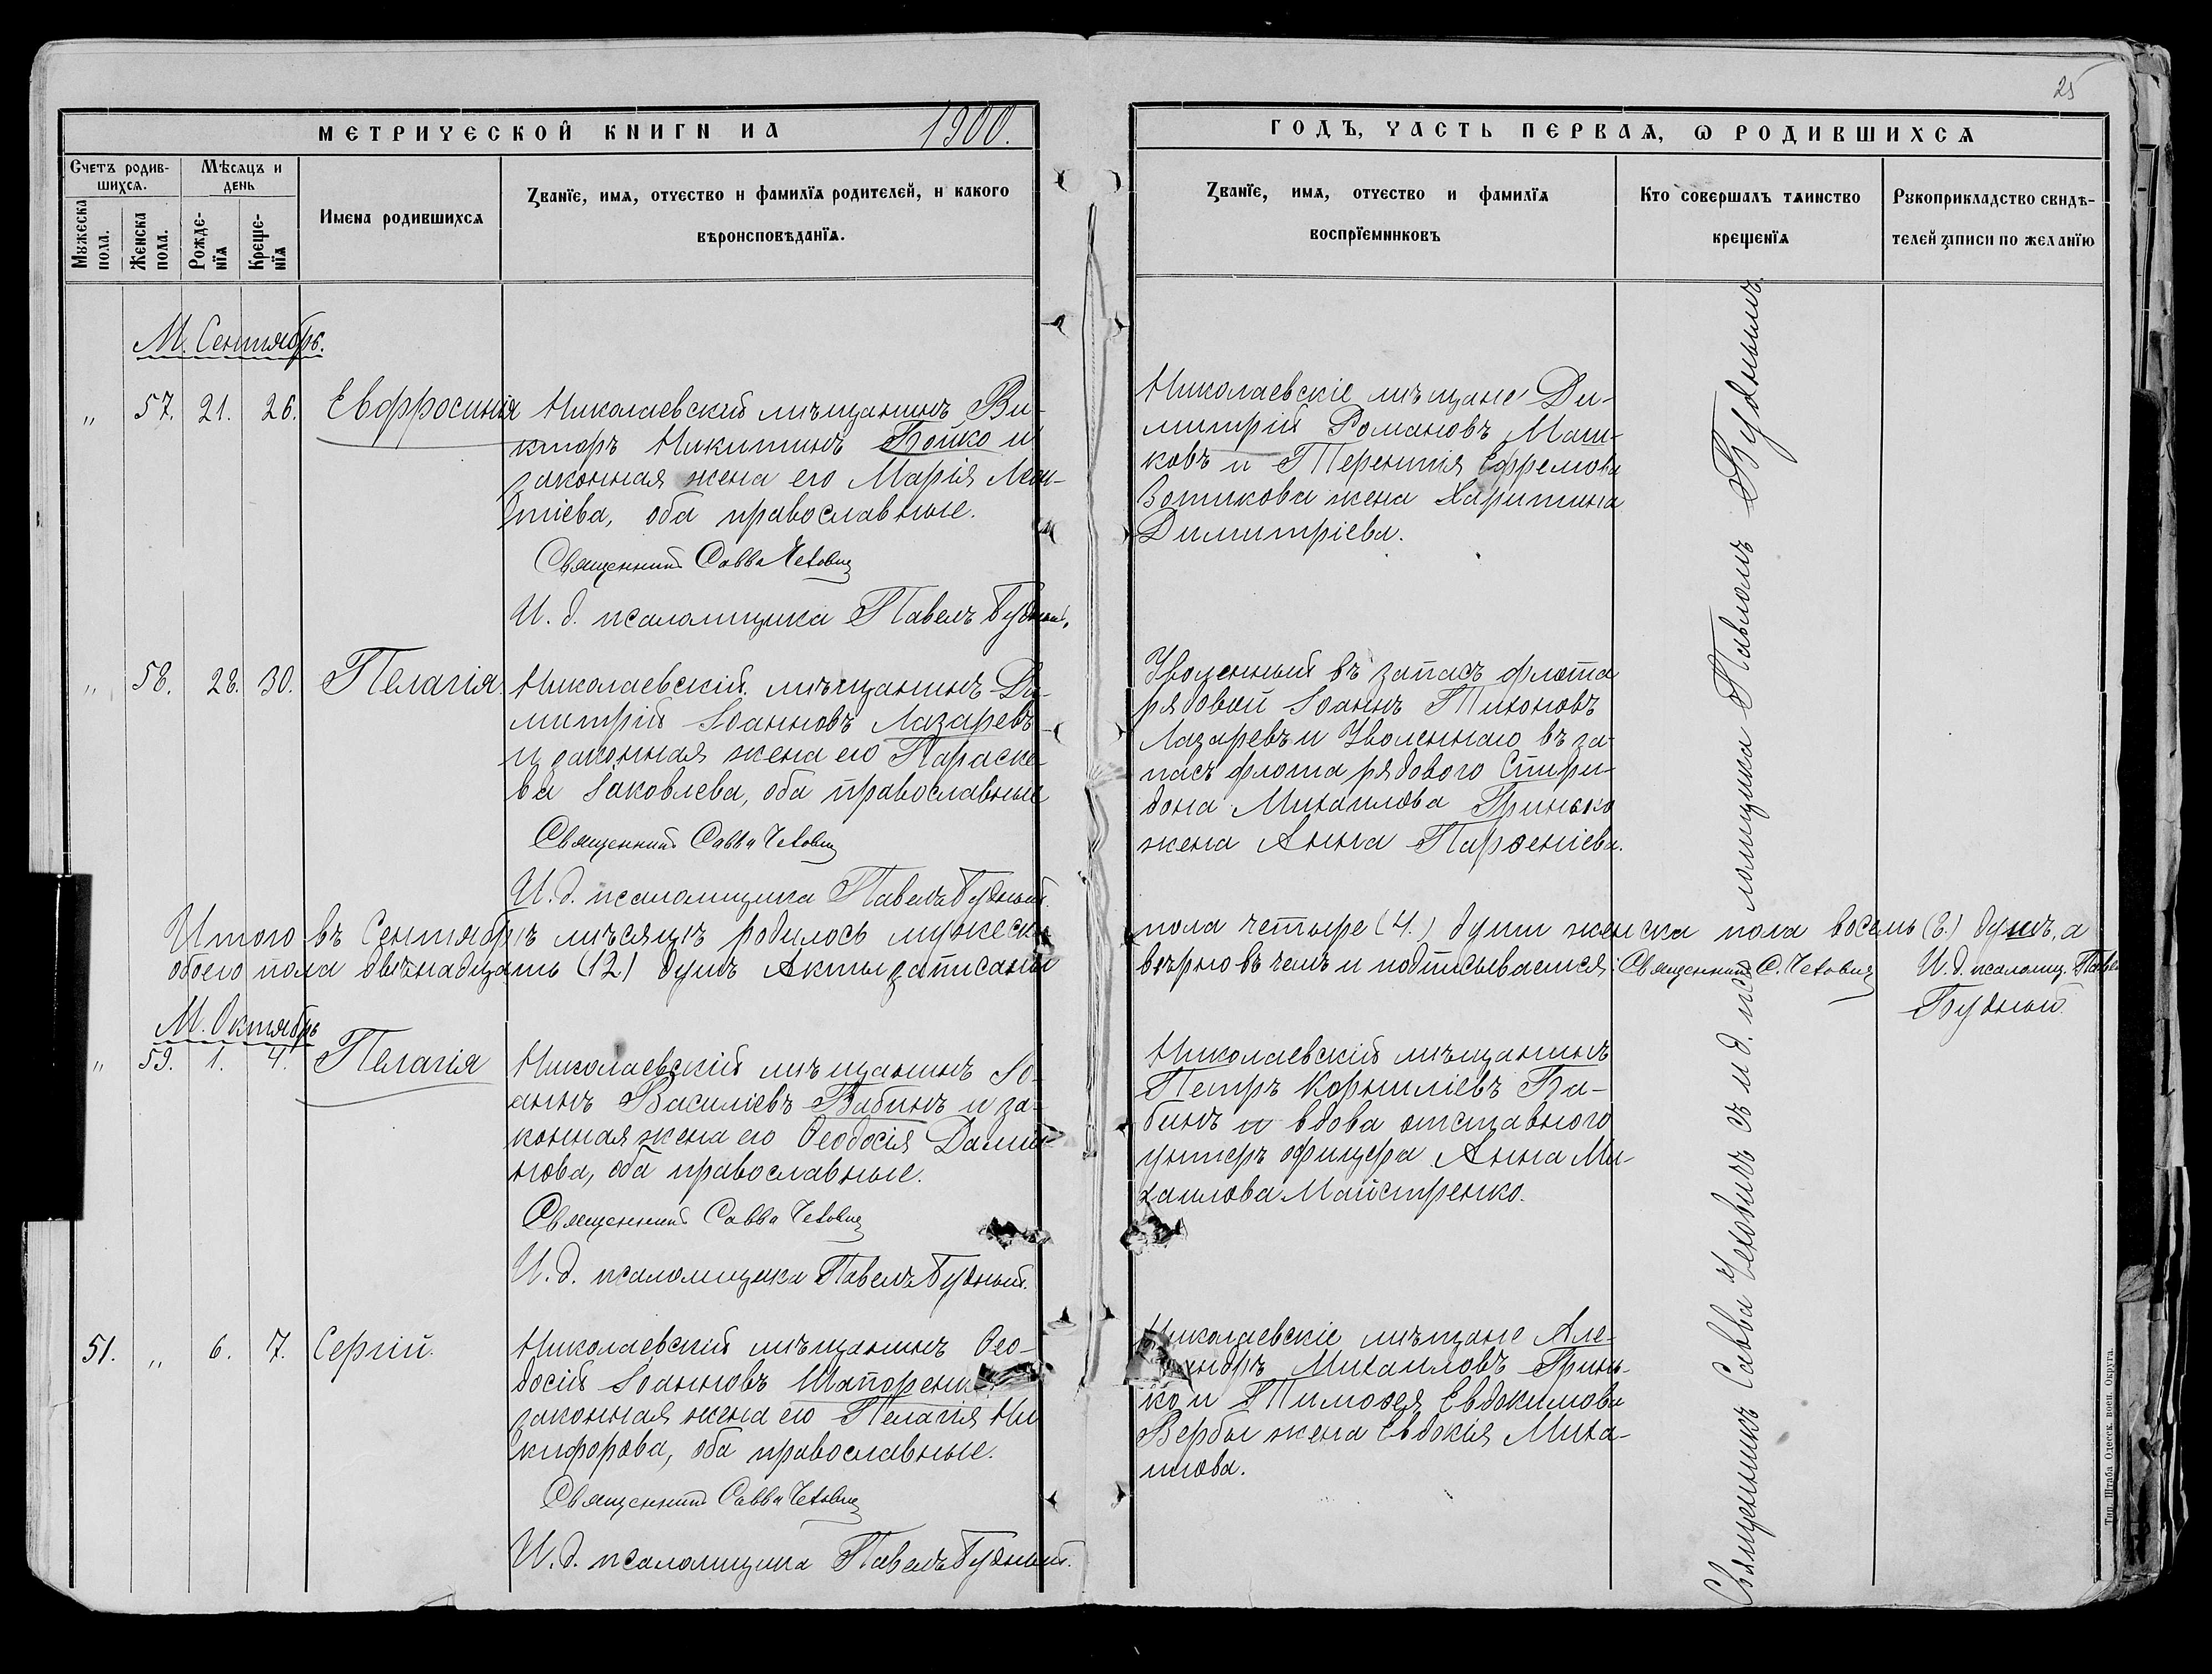 25
МЕТРИЧЕСКОЙ КНИГИ НА 1900.
ГОДЪ, ЧАСТЬ ПЕРВАѦ, Ѡ РОДИВШИХСѦ
Счетъ родив-
шихсѧ.
Мѣсѧцъ и
день
Мꙋжеска
пола.
Женска
пола.
Рожде-
нїѧ
Креще-
нїѧ
Имена родившихсѧ
Званїе, имѧ, отчество и фамилїѧ родителей, и какого
вѣроисповѣданїѧ.
Званїе, имѧ, отчество и фамилїѧ
воспрїемниковъ
Кто совершалъ таинство
крещенїѧ
Рꙋкоприкладство свидѣ-
телей записи по желанїю
М. Сентябрь.
„ 57. 21. 26. Евфросинія
Николаевскій мѣщанинъ Ви-
кторъ Никитинъ Бойко и
законная жена его Марія Леон-
тіева, оба православные.
Священникъ Савва Чехович
И. д. псаломщика Павелъ Будный.
Николаевскіе мѣщане Ди-
митрій Романовъ Маш-
ковъ и Терентія Ефремова
Вотикова жена Харитина
Димитріева.
„ 58. 28. 30. Пелагія.
Николаевскій мѣщанинъ Ди-
митрій Іоанновъ Лазаревъ
и законная жена его Параске-
ва Іаковлева, оба православные
Священникъ Савва Чехович
И. д. псаломщика Павелъ Будный.
Уволенный въ запасъ флота
рядовой Іоаннъ Тихоновъ
Лазаревъ и Уволеннаго въ за-
пасъ флота рядового Спири-
дона Михаилова Гринько
жена Анна Парѳеніева.
Итого въ Сентябрѣ мѣсяцѣ родилось мужеска пола четыре (4.) души женска пола восемь (8.) душъ, а
обоего пола двѣнадцать (12) душъ Акты записаны вѣрно въ чемъ и подписываемся: Священникъ С. Чехович И. д. псаломщ. Павелъ
Будный.
М. Октябрь
„ 59. 1. 4. Пелагія
Николаевскій мѣщанинъ Іо-
аннъ Василіевъ Бабинъ и за-
конная жена его Ѳеодосія Даміа-
нова, оба православные.
Священникъ Савва Чехович
И. д. псаломщика Павелъ Будный.
Николаевскій мѣщанинъ
Петръ Корниліевъ Ба-
бинъ и вдова отставного
унтеръ офицера Анна Ми-
хаилова Майстренко.
51. „ 6. 7. Сергій.
Николаевскій мѣщанинъ Ѳео-
досій Іоанновъ Шапоренк
законная жена его Пелагія Ни-
кифорова, оба православные.
Священникъ Савва Чехович
И. д. псаломщика Павелъ Будный.
Николаевскіе мѣщане Але-
ндръ Михаиловъ Гринь-
ко и Тимоѳея Евдокимова
Вербы жена Евдокія Миха-
илова.
Священникъ Савва Чеховичъ съ и. д. псаломщика Павломъ Буднымъ.
Тип. Штаба Одесск. воен. Округа.